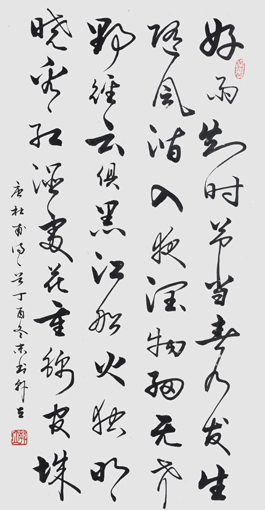 好雨知时节当春乃发生
随风潜入夜润物细无声
野径云俱黑江船火独明
晓看红湿处花重锦官城
唐杜甫诗丁酉冬末书